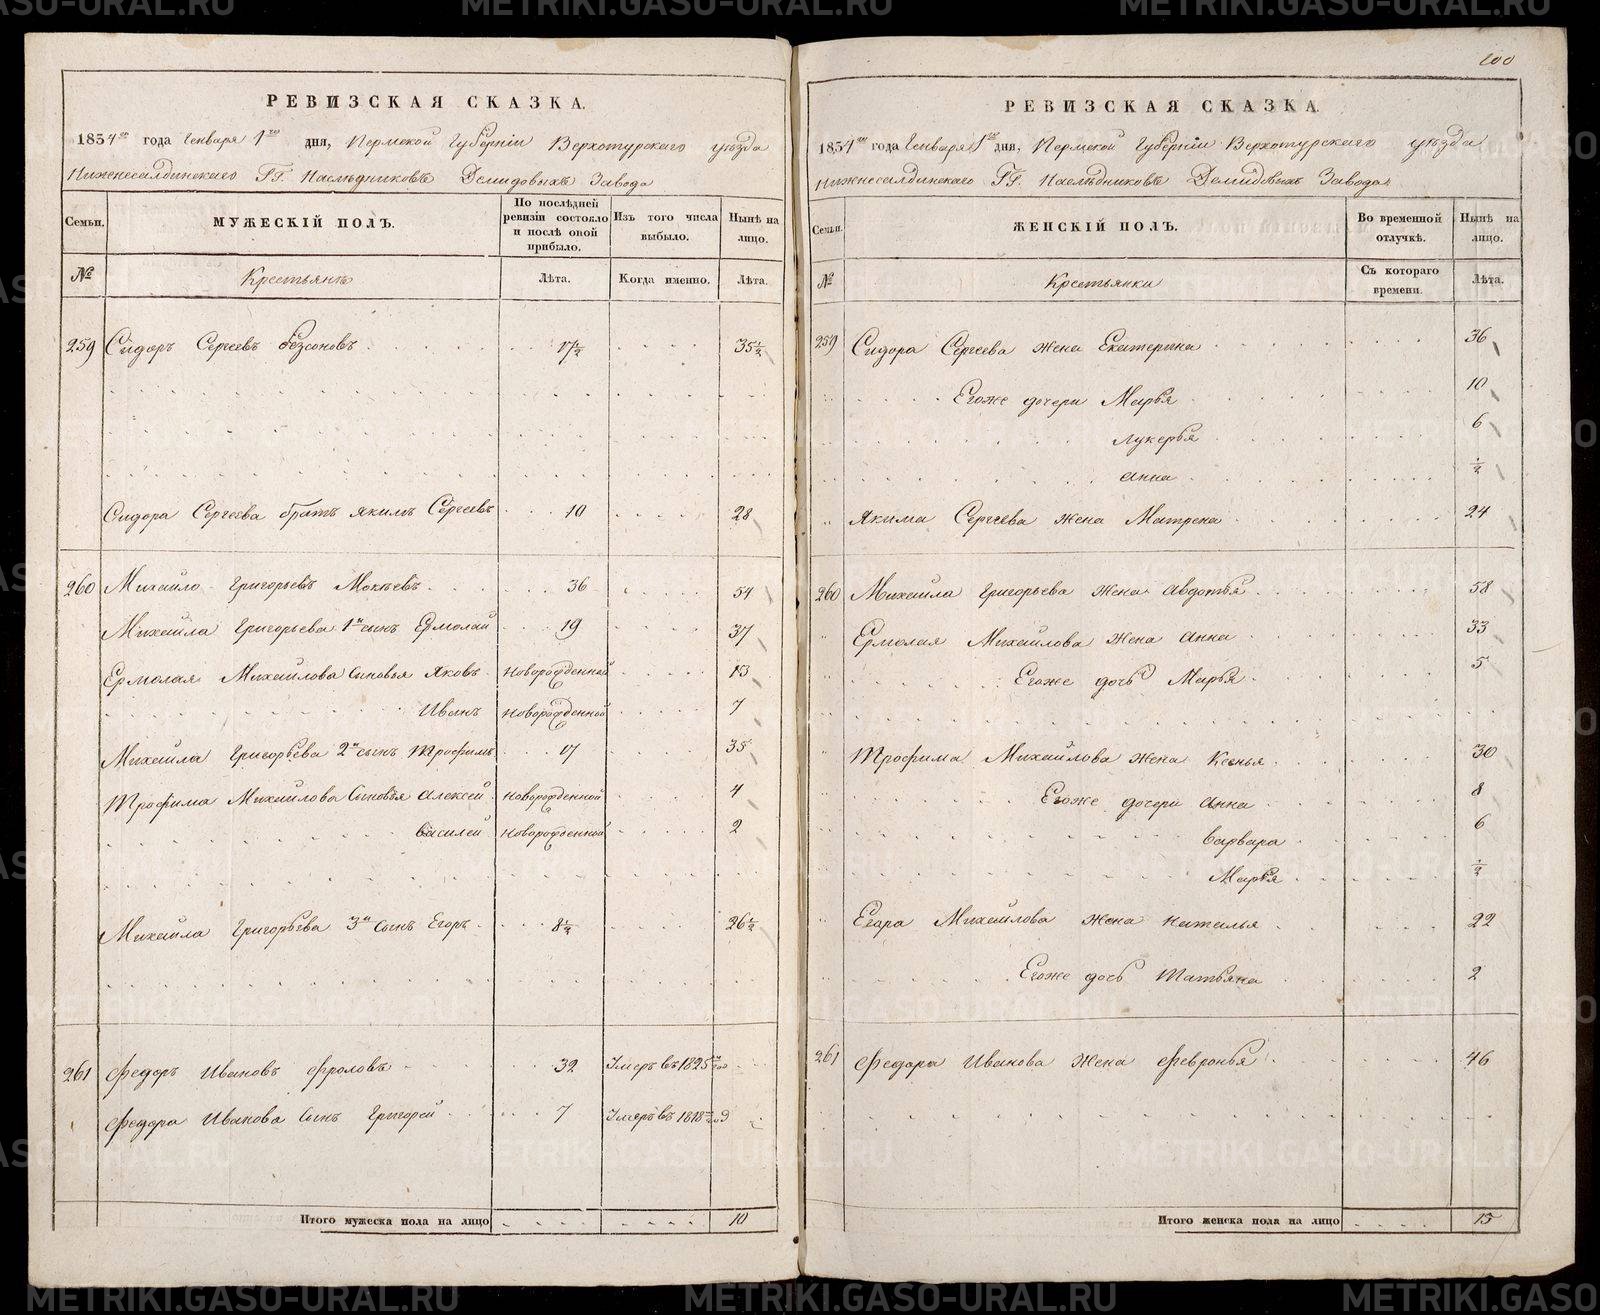 200
РЕВИЗСКАЯ СКАЗКА.
1834го года Генваря 1го дня, Пермской Губерніи Верхотурскаго уѣзда
Нижнесалдинскаго ГГ. Наслѣдниковъ Демидовыхъ Завода
Семьи. МУЖЕСКІЙ ПОЛЪ. По послѣдней ревизіи состояло и послѣ оной прибыло. Изъ того числа выбыло. Нынѣ на лицо.
№ Крестьянъ Лѣта. Когда именно. Лѣта.
259 Сидоръ Сергеевъ Безсоновъ 17½ 35½
Сидора Сергеева братъ Якимъ Сергеевъ 10 28
260 Михайло Григорьевъ Мокѣевъ 36 54
Михайла Григорьева 1й сынъ Ермолай 19 37
Ермолая Михайлова Сыновья Яковъ Новорожденной 13
Иванъ Новорожденной 7
Михайла Григорьева 2й сынъ Трофимъ 17 35
Трофима Михайлова Сыновья Алексей Новорожденной 4
Василей Новорожденной 2
Михайла Григорьева 3й сынъ Егоръ 8½ 26½
261 Федоръ Ивановъ Фроловъ 32 Умеръ въ 1825м году
Федора Иванова Сынъ Григорей 7 Умеръ въ 1818м году
Итого мужеска пола на лицо 10
РЕВИЗСКАЯ СКАЗКА.
1834го года Генваря 1го дня, Пермской Губерніи Верхотурскаго уѣзда
Нижнесалдинскаго ГГ. Наслѣдниковъ Демидовыхъ Завода
Семьи. ЖЕНСКІЙ ПОЛЪ. Во временной отлучкѣ. Нынѣ на лицо.
№ Крестьянки Съ котораго времени. Лѣта.
259 Сидора Сергеева жена Екатерина 36
Егоже дочери Марья 10
Лукерья 6
Анна ½
Якима Сергеева жена Матрена 24
260 Михайла Григорьева жена Авдотья 58
Ермолая Михайлова жена Анна 33
Егоже дочь Марья 5
Трофима Михайлова жена Ксенья 30
Егоже дочери Анна 8
Варвара 6
Марья ½
Егора Михайлова жена Наталья 22
Егоже дочь Татьяна 2
261 Федора Иванова жена Февронья 46
Итого женска пола на лицо 15
METRIKI.GASO-URAL.RU